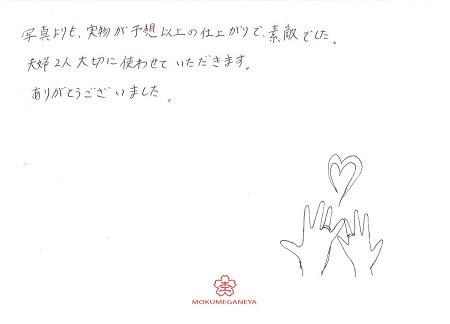 写真よりも、実物が予想以上の仕上がりで、素敵でした。
夫婦2人大切に使わせていただきます。
ありがとうございました。
MOKUMEGANEYA